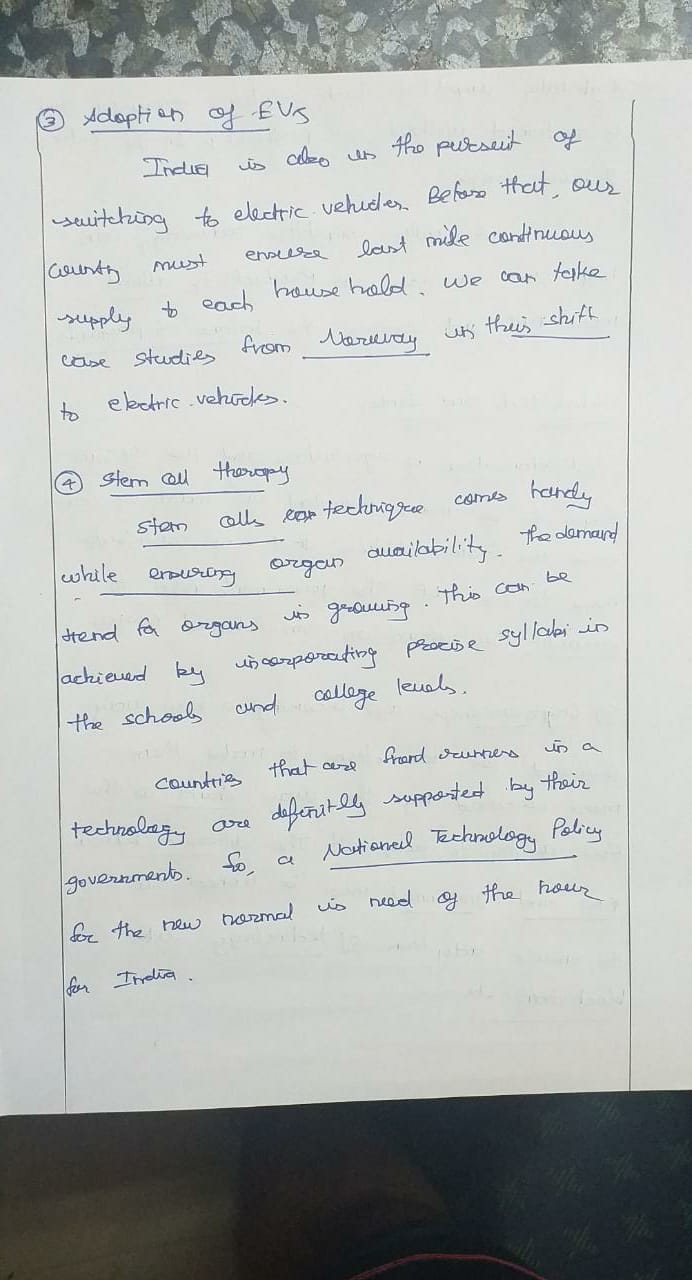 ③ Adoption of EVs
India is also in the pursuit of
switching to electric vehicles. Before that, our
country must ensure last mile continuous
supply to each house hold. We can take
case studies from Norway in their shift
to electric vehicles.
④ Stem cell therapy
Stem cells technique comes handy
while ensuring organ availability. The demand
trend for organs is growing. This can be
achieved by incorporating precise syllabi in
the schools and college levels.
Countries that are front runners in a
technology are definitly supported by their
governments. So, a National Technology Policy
for the new normal is need of the hour
for India.